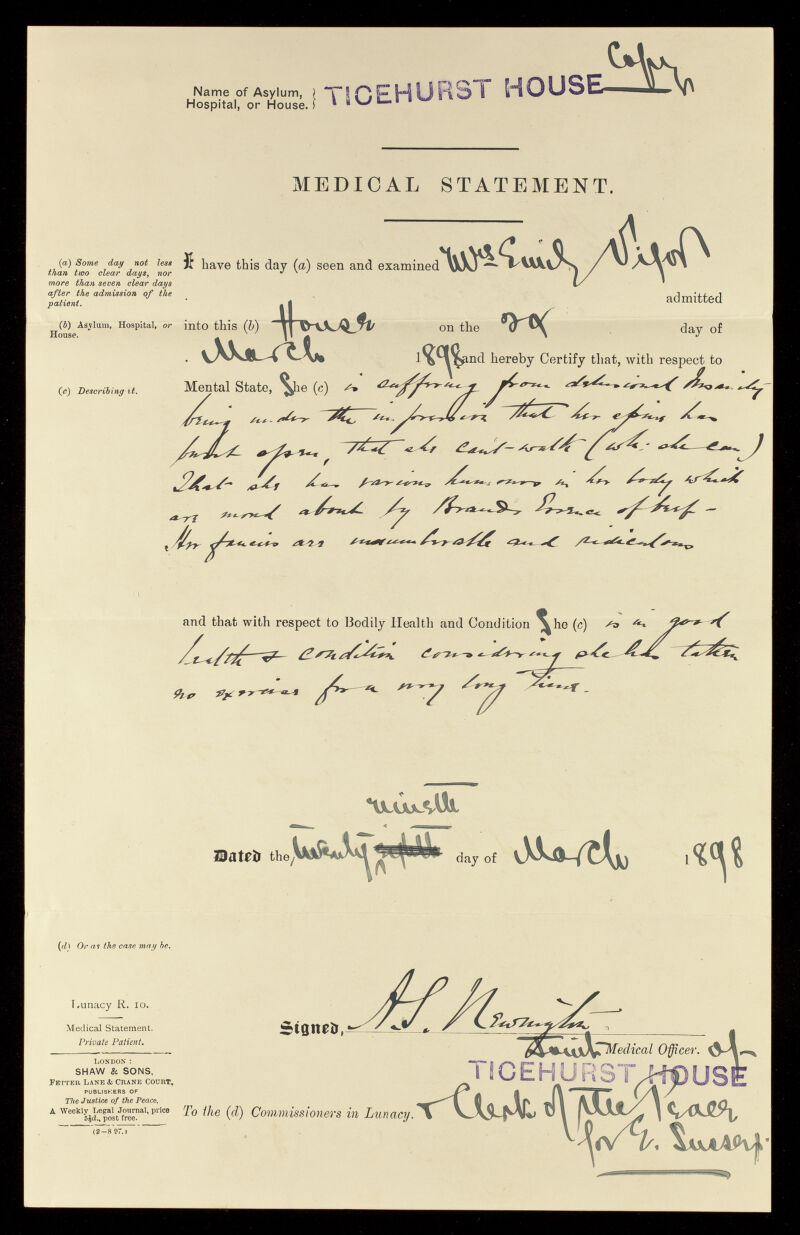 Copy
Name of Asylum,
Hospital, or House.
TICEHURST HOUSE
MEDICAL STATEMENT.
(a) Some day not less
than two clear days, nor
more than seven clear days
after the admission of the
patient.
I have this day (a) seen and examined Mrs Emily
admitted
(b) Asylum, Hospital, or
House.
into this (b) House on the day of
March 1898 and hereby Certify that, with respect to
(c) Describing it.
Mental State, She (c) is suffering from delusional Insanity
being under the impression that her spine has
burst open, that she can't walk (wh: she can)
That she has various humours in her body which
are moved about by Brands Essence of beef -
Her fancies are innumberable and ridiculous
and that with respect to Bodily Health and Condition She (c) is in good
health & condition considering she has taken
no exercise for a very long time.
nineth
Dated the, twenty day of March 1898
(d) Or as the case may be.
Lunacy R. 10.
Medical Statement.
Private Patient.
LONDON:
SHAW & SONS,
FETTER LANE & CRANE COURT,
PUBLISHERS OF
The Justice of the Peace,
A Weekly Legal Journal, price
5½d., post free.
(2—8 97.)
Signed, A.S. Newington
Joint Medical Officer. of
TICEHURST HOUSE
To the (d) Commissioners in Lunacy. & Clerk of the Peace
for E. Sussex.